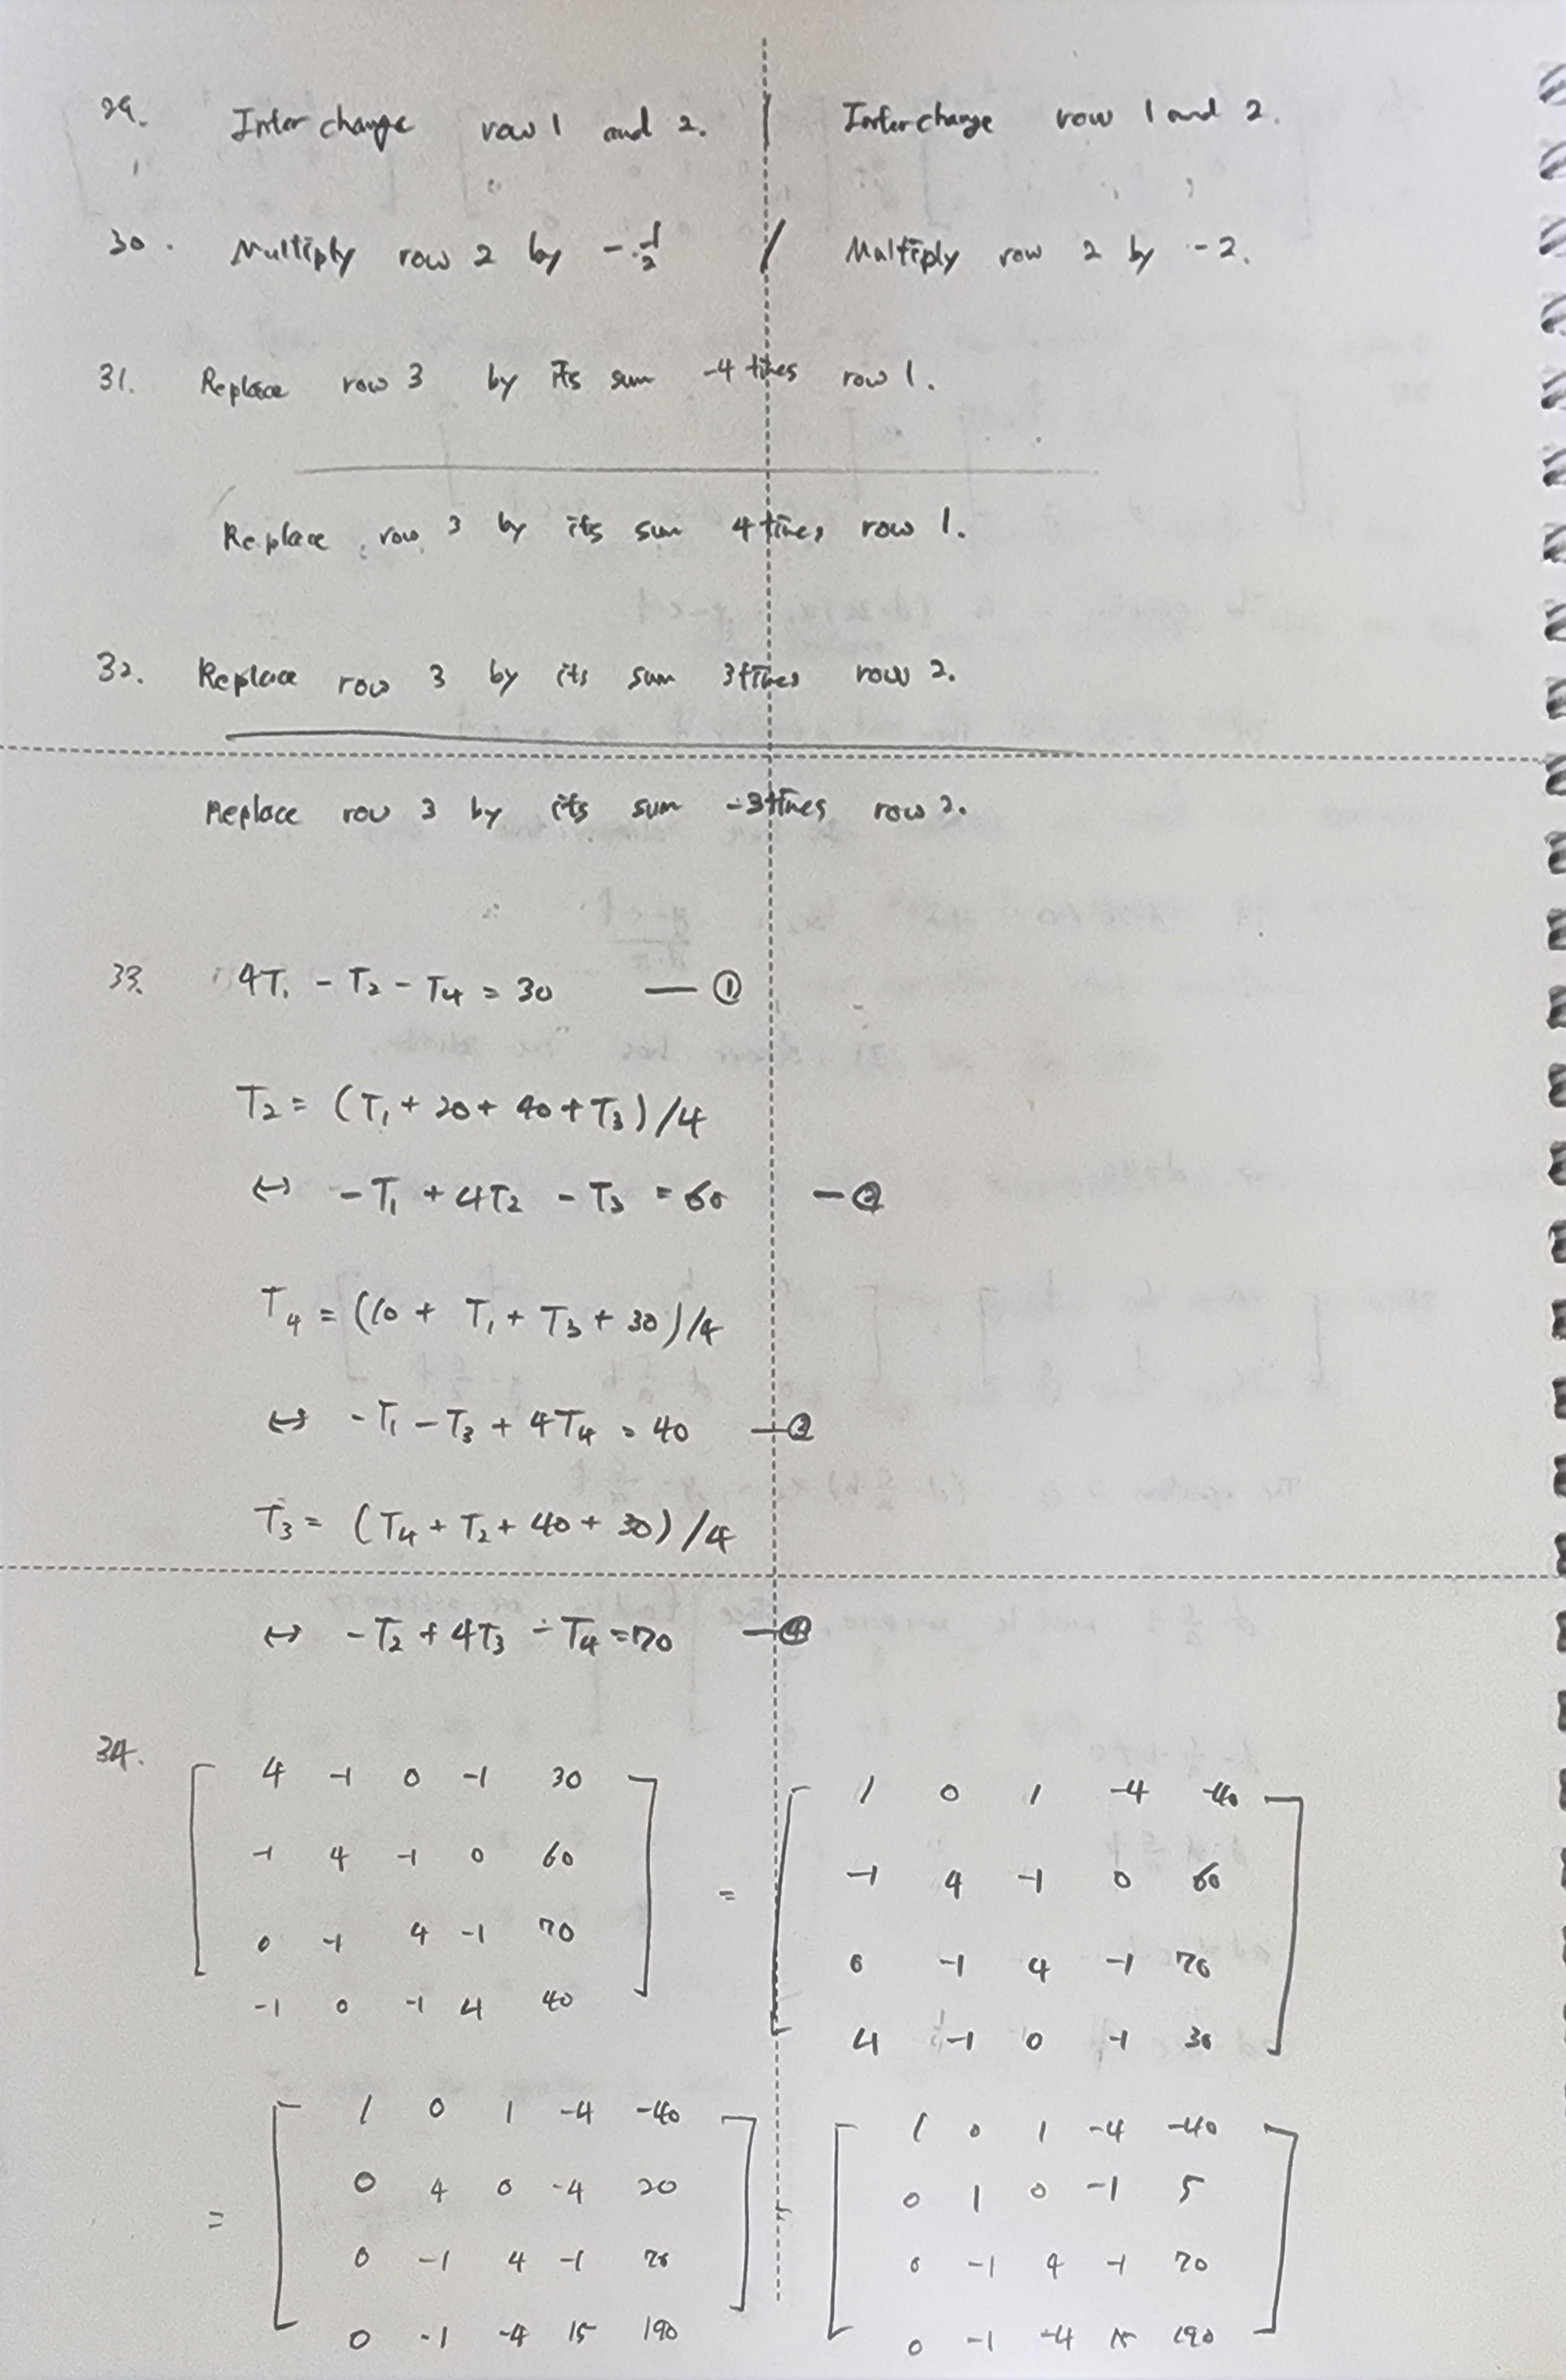 29. Interchange row 1 and 2. / Interchange row 1 and 2.
30. Multiply row 2 by -1/2 / Multiply row 2 by -2.
31. Replace row 3 by its sum -4 times row 1.
Replace row 3 by its sum 4 times row 1.
32. Replace row 3 by its sum 3 times row 2.
Replace row 3 by its sum -3 times row 2.
33. 4T₁ - T₂ - T₄ = 30 — ①
T₂ = (T₁ + 20 + 40 + T₃)/4
↔ -T₁ + 4T₂ - T₃ = 60 — ②
T₄ = (10 + T₁ + T₃ + 30)/4
↔ -T₁ - T₃ + 4T₄ = 40 — ③
T₃ = (T₄ + T₂ + 40 + 30)/4
↔ -T₂ + 4T₃ - T₄ = 70 — ④
34.
4 -1 0 -1 30
-1 4 -1 0 60
0 -1 4 -1 70
-1 0 -1 4 40
=
1 0 1 -4 -40
-1 4 -1 0 60
0 -1 4 -1 70
4 -1 0 -1 30
=
1 0 1 -4 -40
0 4 0 -4 20
0 -1 4 -1 70
0 -1 -4 15 190
=
1 0 1 -4 -40
0 1 0 -1 5
0 -1 4 -1 70
0 -1 -4 15 190